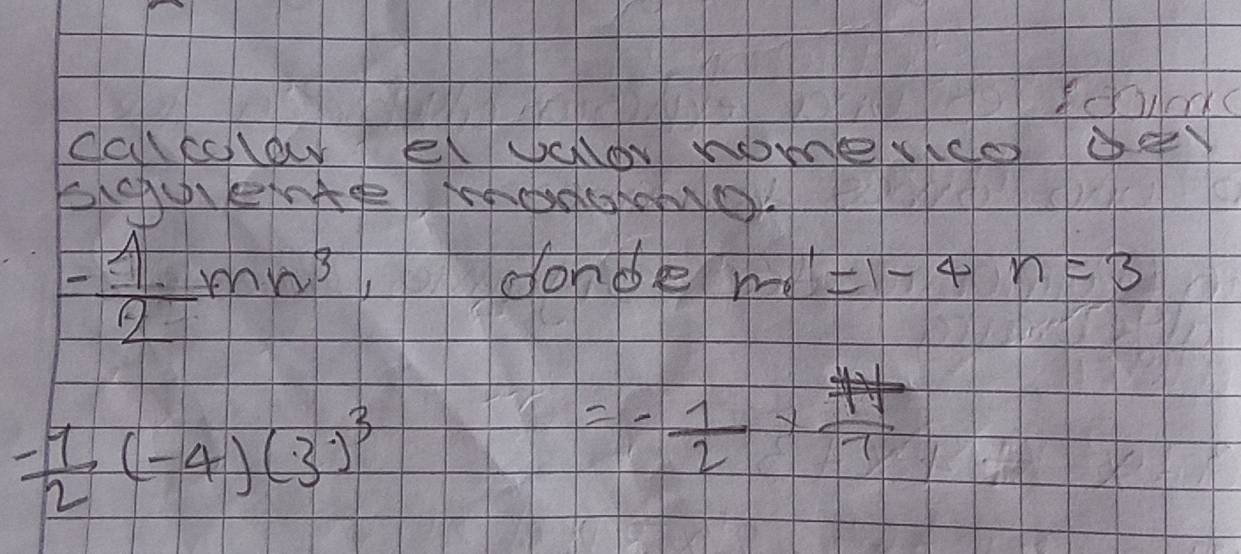 calcolar el valor nomerico del
siguiente monomio.
-1/2 mn³, donde m = -4 n = 3
-1/2 (-4)(3)³ = -1/2 ×